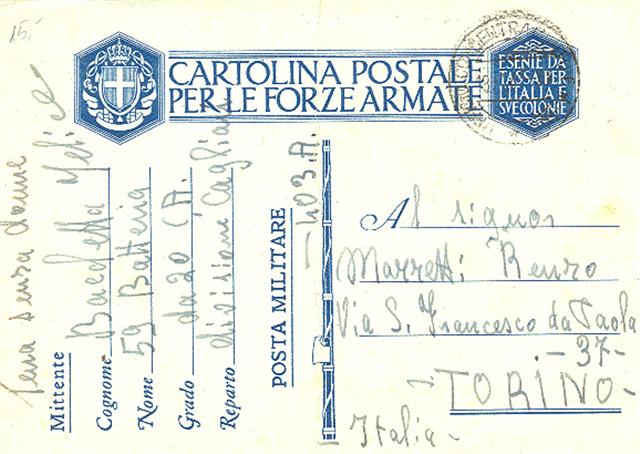 15.
CARTOLINA POSTALE
PER LE FORZE ARMATE
ESENTE DA
TASSA PER
L'ITALIA E
SVE COLONIE
senza donne
Mittente
Cognome Bacchetta Felice
Nome 59 Batteria
Grado da 20 (A.
Reparto divisione Cagliari
POSTA MILITARE 403.A.
Al signor
Marretti Renzo
Via S. Francesco da Paola
-37-
TORINO-
Italia-